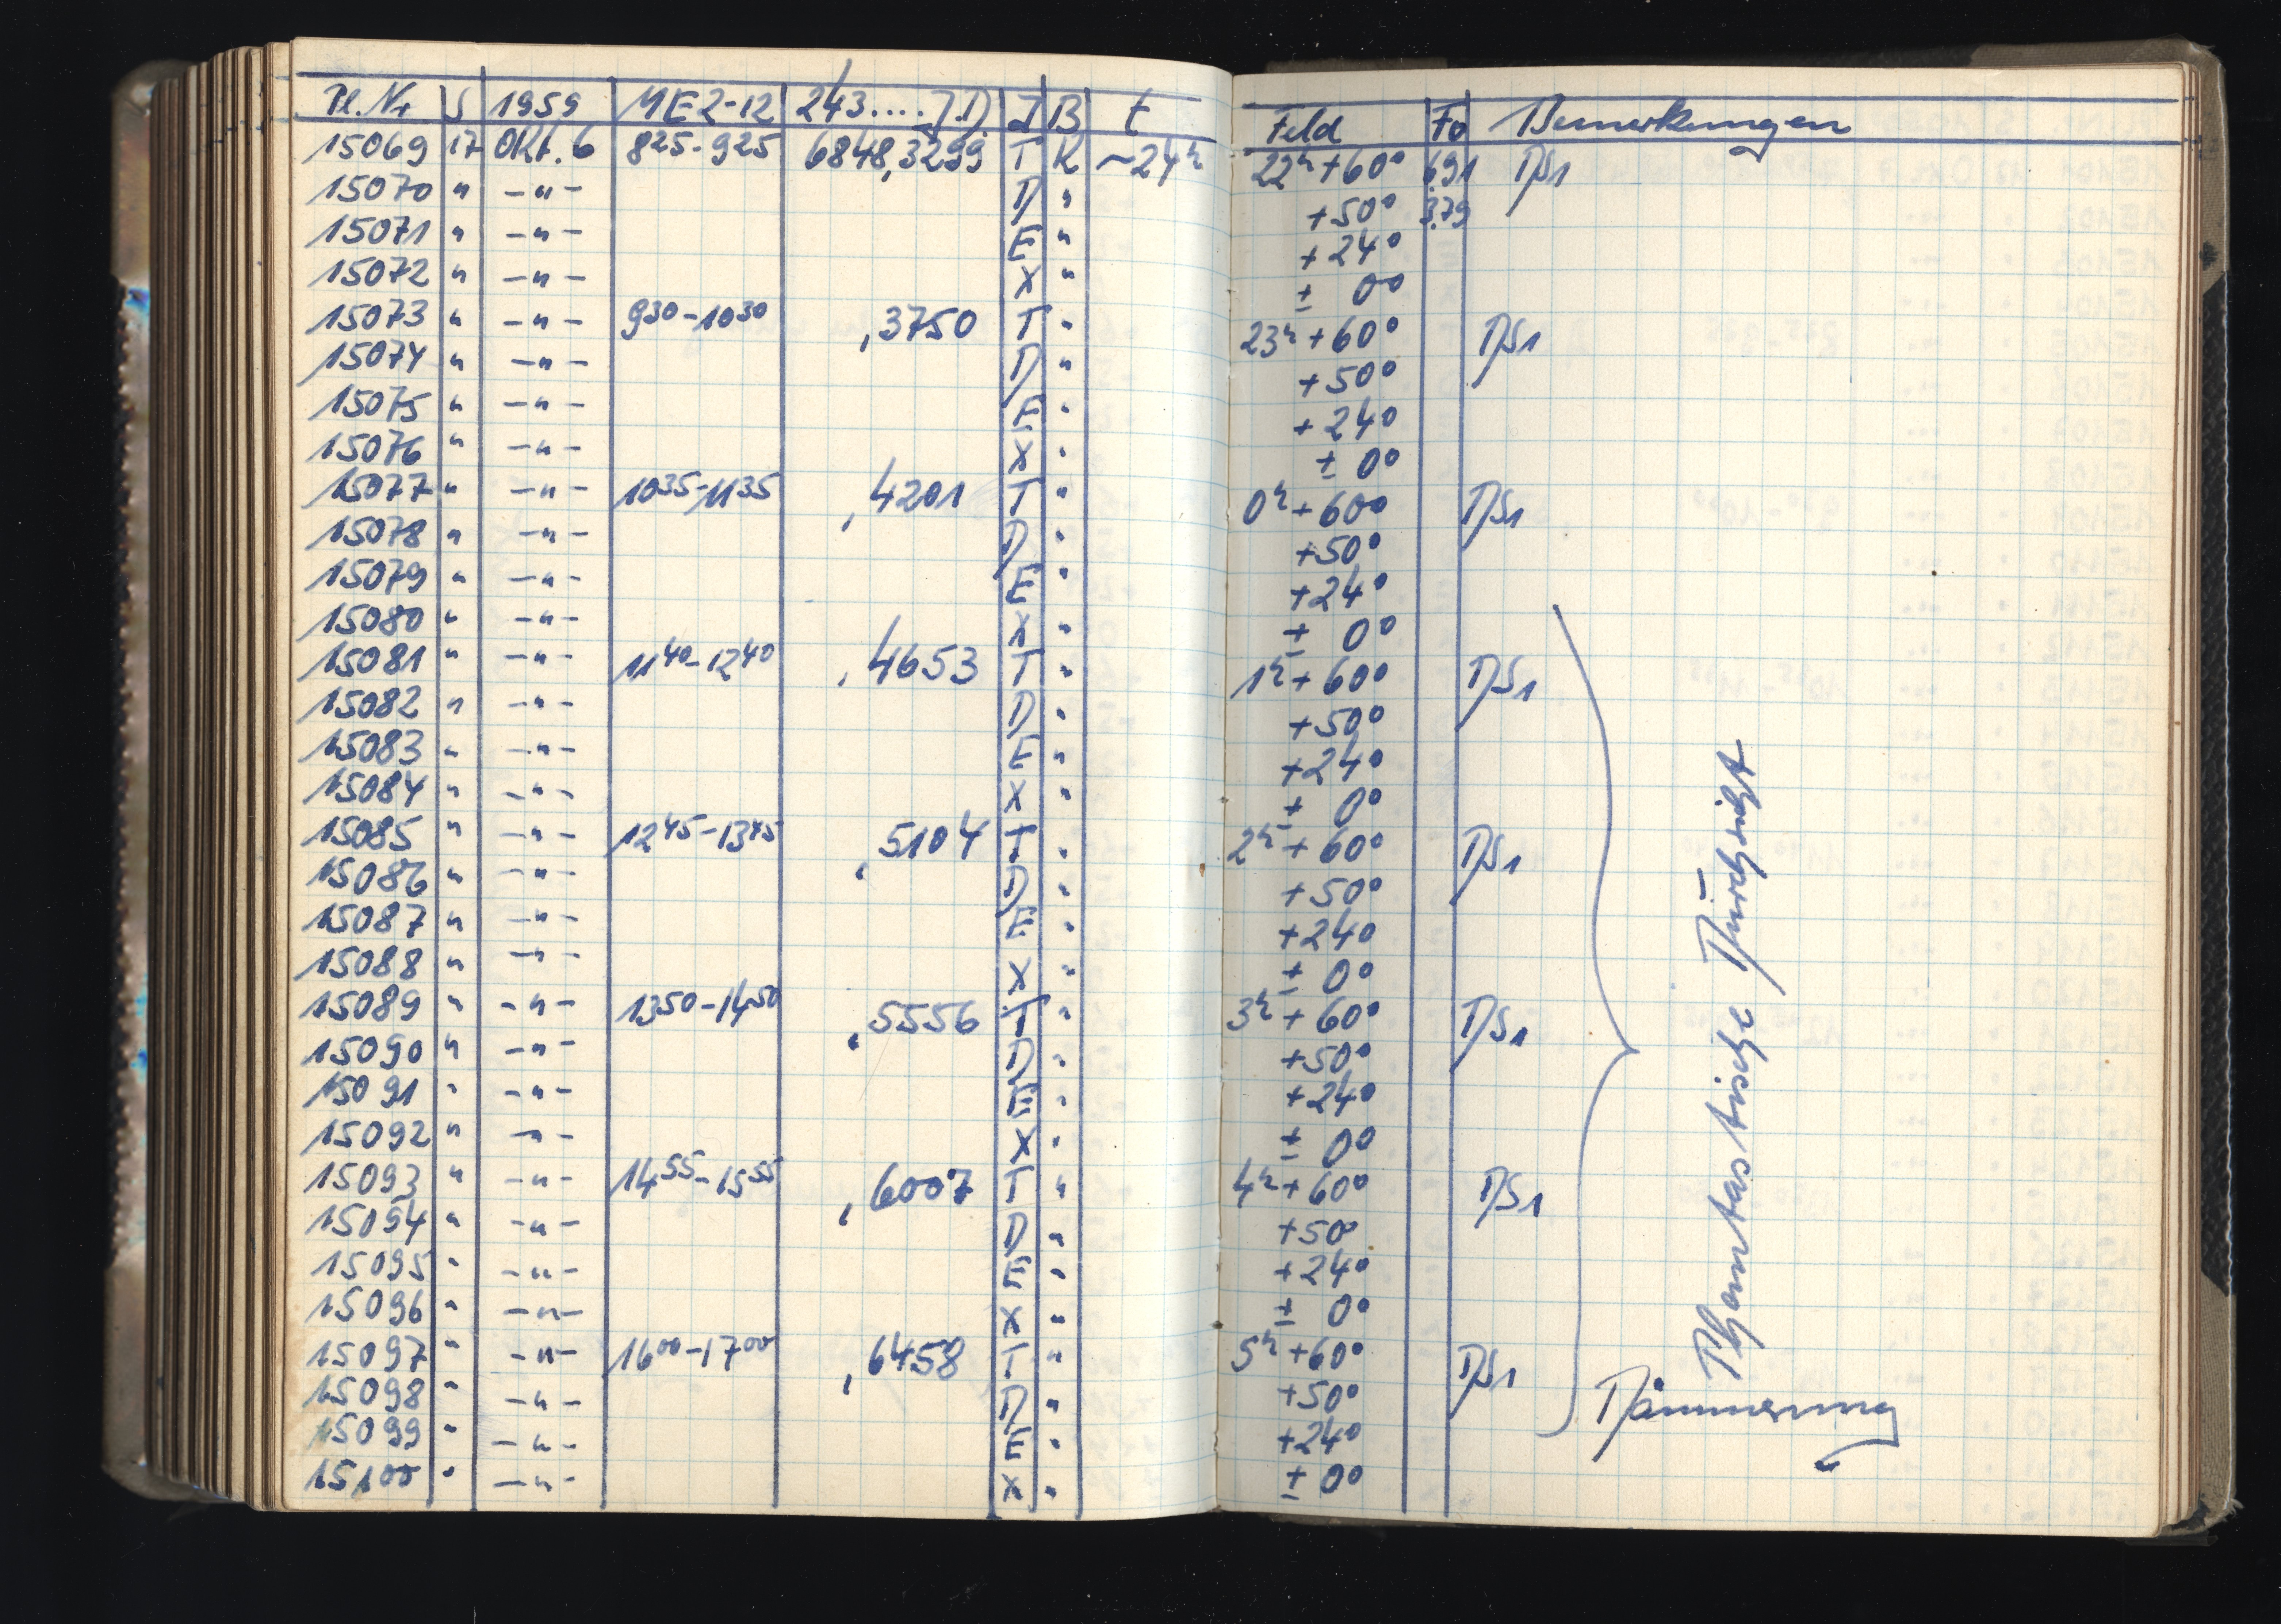 Pl. Nr S 1959 MEZ-12 243....J.D. I B t Feld Fo Bemerkungen
15069 17 Okt. 6 8 25-9 25 6848,3299 T K ~24h 22h +60° 6.91 DS1
15070 " -"- D " +50° 3.79
15071 " -"- E " +24°
15072 " -"- X " ± 0°
15073 " -"- 9 30-10 30 ,3750 T " 23h +60° DS1
15074 " -"- D " +50°
15075 " -"- E " +24°
15076 " -"- X " ± 0°
15077 " -"- 10 35-11 35 ,4201 T " 0h +60° DS1
15078 " -"- D " +50°
15079 " -"- E " +24°
15080 " -"- X " ± 0°
15081 " -"- 11 40-12 40 ,4653 T " 1h +60° DS1
15082 " -"- D " +50°
15083 " -"- E " +24°
15084 " -"- X " ± 0°
15085 " -"- 12 45-13 45 ,5104 T " 2h +60° DS1
15086 " -"- D " +50°
15087 " -"- E " +24°
15088 " -"- X " ± 0°
15089 " -"- 13 50-14 50 ,5556 T " 3h +60° DS1
15090 " -"- D " +50°
15091 " -"- E " +24°
15092 " -"- X " ± 0°
15093 " -"- 14 55-15 55 ,6007 T " 4h +60° DS1
15094 " -"- D " +50°
15095 " -"- E " +24°
15096 " -"- X " ± 0°
15097 " -"- 16 00-17 00 ,6458 T " 5h +60° DS1
15098 " -"- D " +50°
15099 " -"- E " +24°
15100 " -"- X " ± 0°
Phantastische Durchsicht
Dämmerung